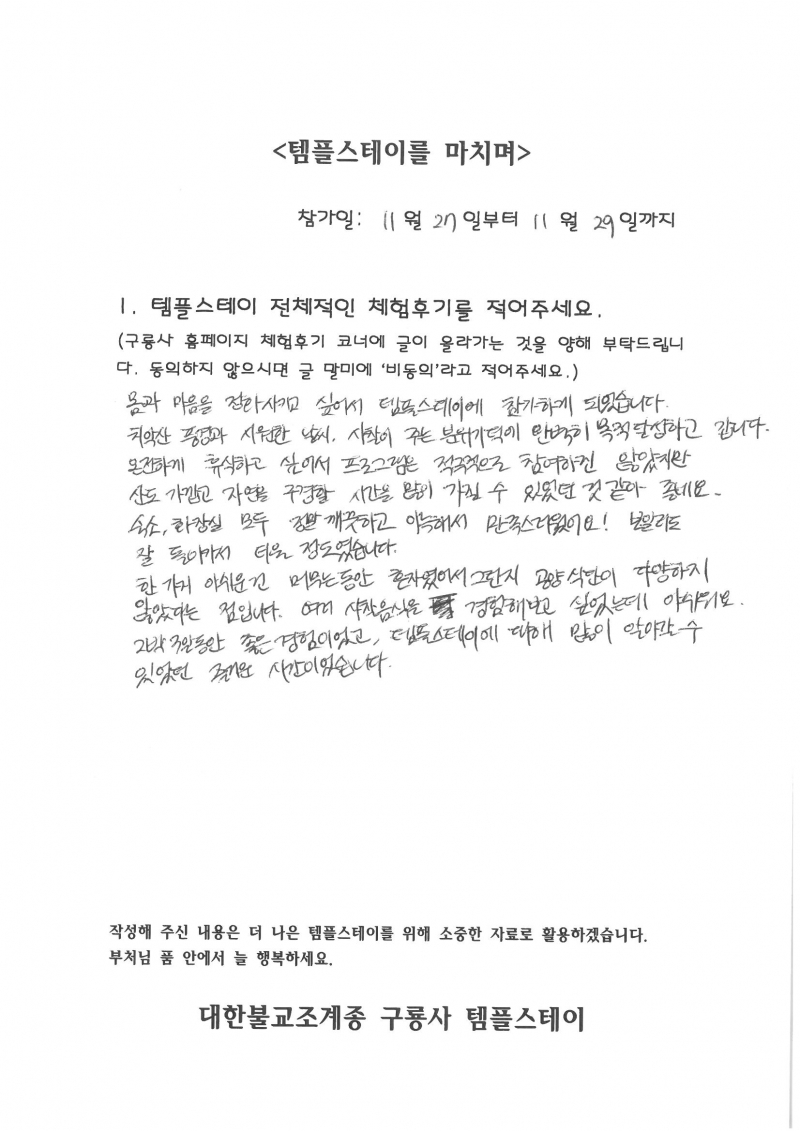 <템플스테이를 마치며>
참가일: 11월 27일부터 11월 29일까지
1. 템플스테이 전체적인 체험후기를 적어주세요.
(구룡사 홈페이지 체험후기 코너에 글이 올라가는 것을 양해 부탁드립니
다. 동의하지 않으시면 글 말미에 '비동의'라고 적어주세요.)
몸과 마음을 전환시키고 싶어서 템플스테이에 참가하게 되었습니다.
치악산 풍경과 시원한 날씨, 사찰이 주는 분위기덕에 완벽히 목적달성하고 갑니다.
온전하게 휴식하고 싶어서 프로그램은 적극적으로 참여하진 않았지만
산도 가깝고 자연을 구경할 시간을 많이 가질 수 있었던 것 같아 좋네요.
숙소, 화장실 모두 정말 깨끗하고 아늑해서 만족스러웠어요! 보일러도
잘 돌아가서 더울 정도였습니다.
한 가지 아쉬운건 머무는동안 혼자였어서 그런지 공양 식단이 다양하지
않았다는 점입니다. 여러 사찰음식을 경험해보고 싶었는데 아쉬워요.
2박 3일동안 좋은 경험이었고, 템플스테이에 대해 많이 알아갈 수
있었던 즐거운 시간이었습니다.
작성해 주신 내용은 더 나은 템플스테이를 위해 소중한 자료로 활용하겠습니다.
부처님 품 안에서 늘 행복하세요.
대한불교조계종 구룡사 템플스테이